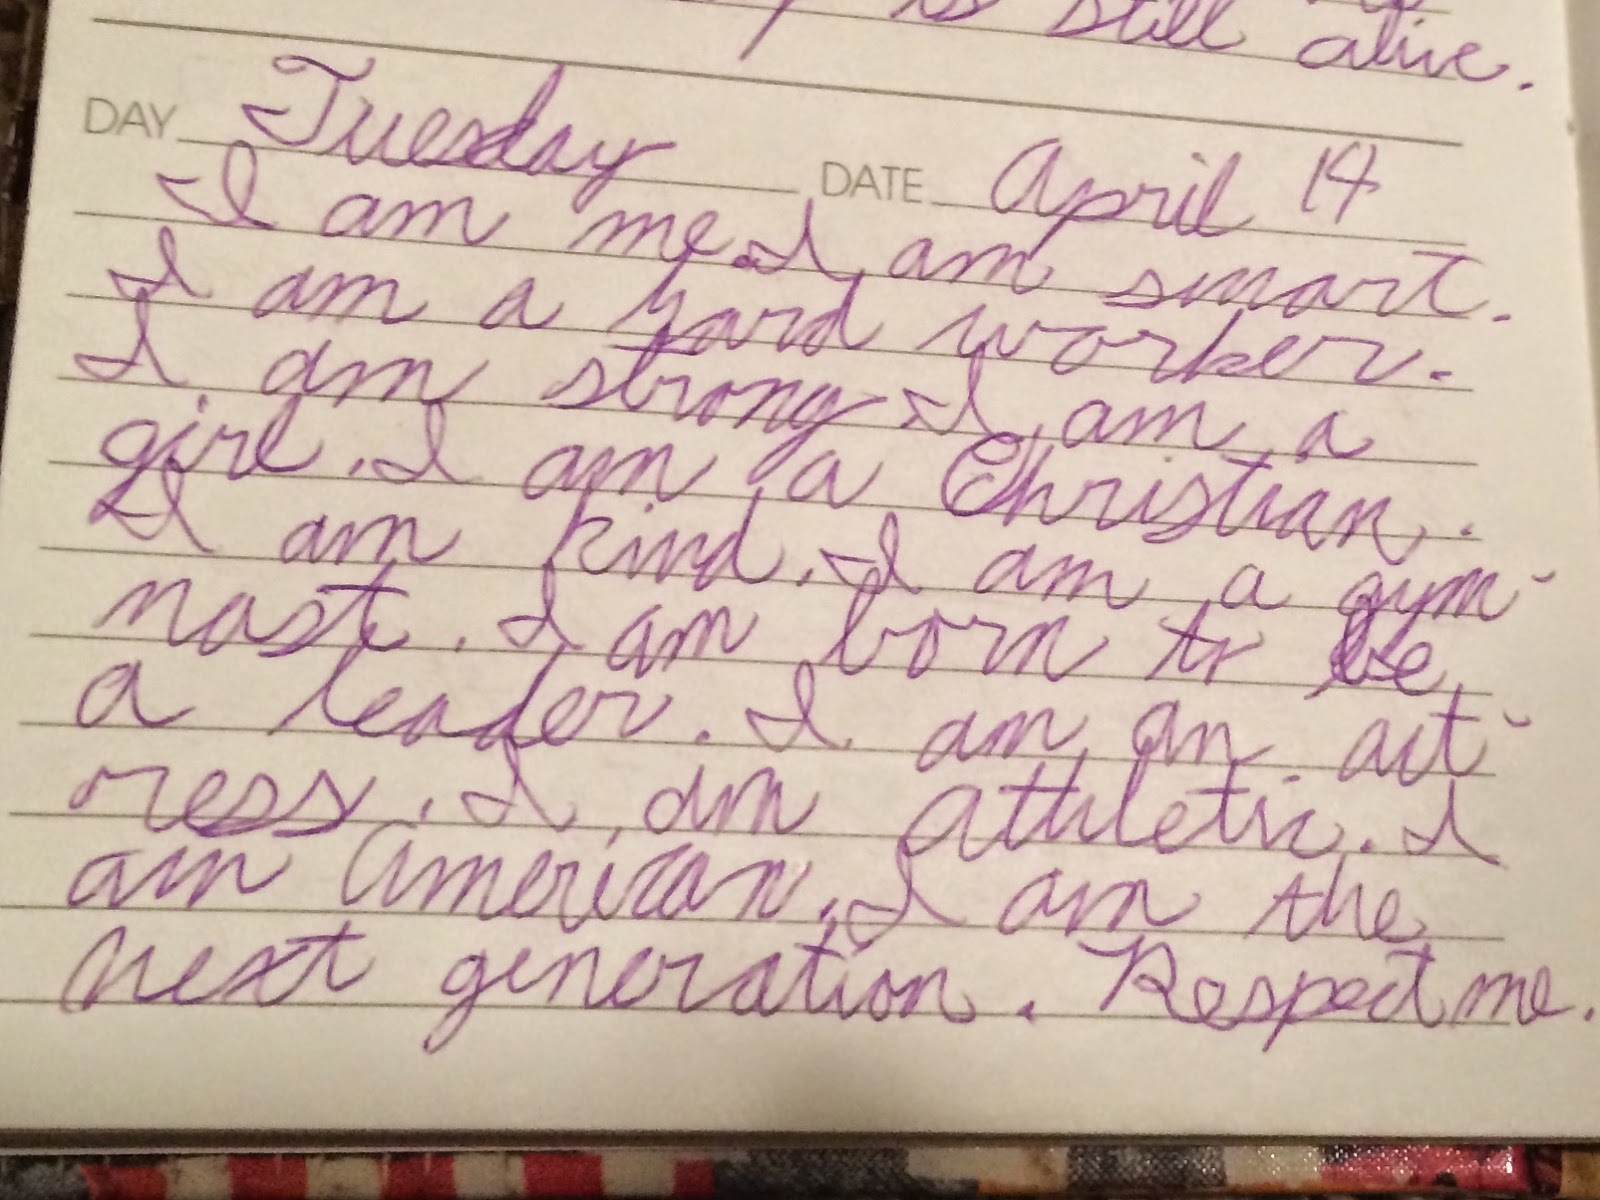 is still alive.
DAY Tuesday DATE April 14
I am me. I am smart.
I am a hard worker.
I am strong. I am a
girl. I am a Christian.
I am kind. I am a gym-
nast. I am born to be
a leader. I am an act-
ress. I am athletic. I
am American. I am the
next generation. Respect me.